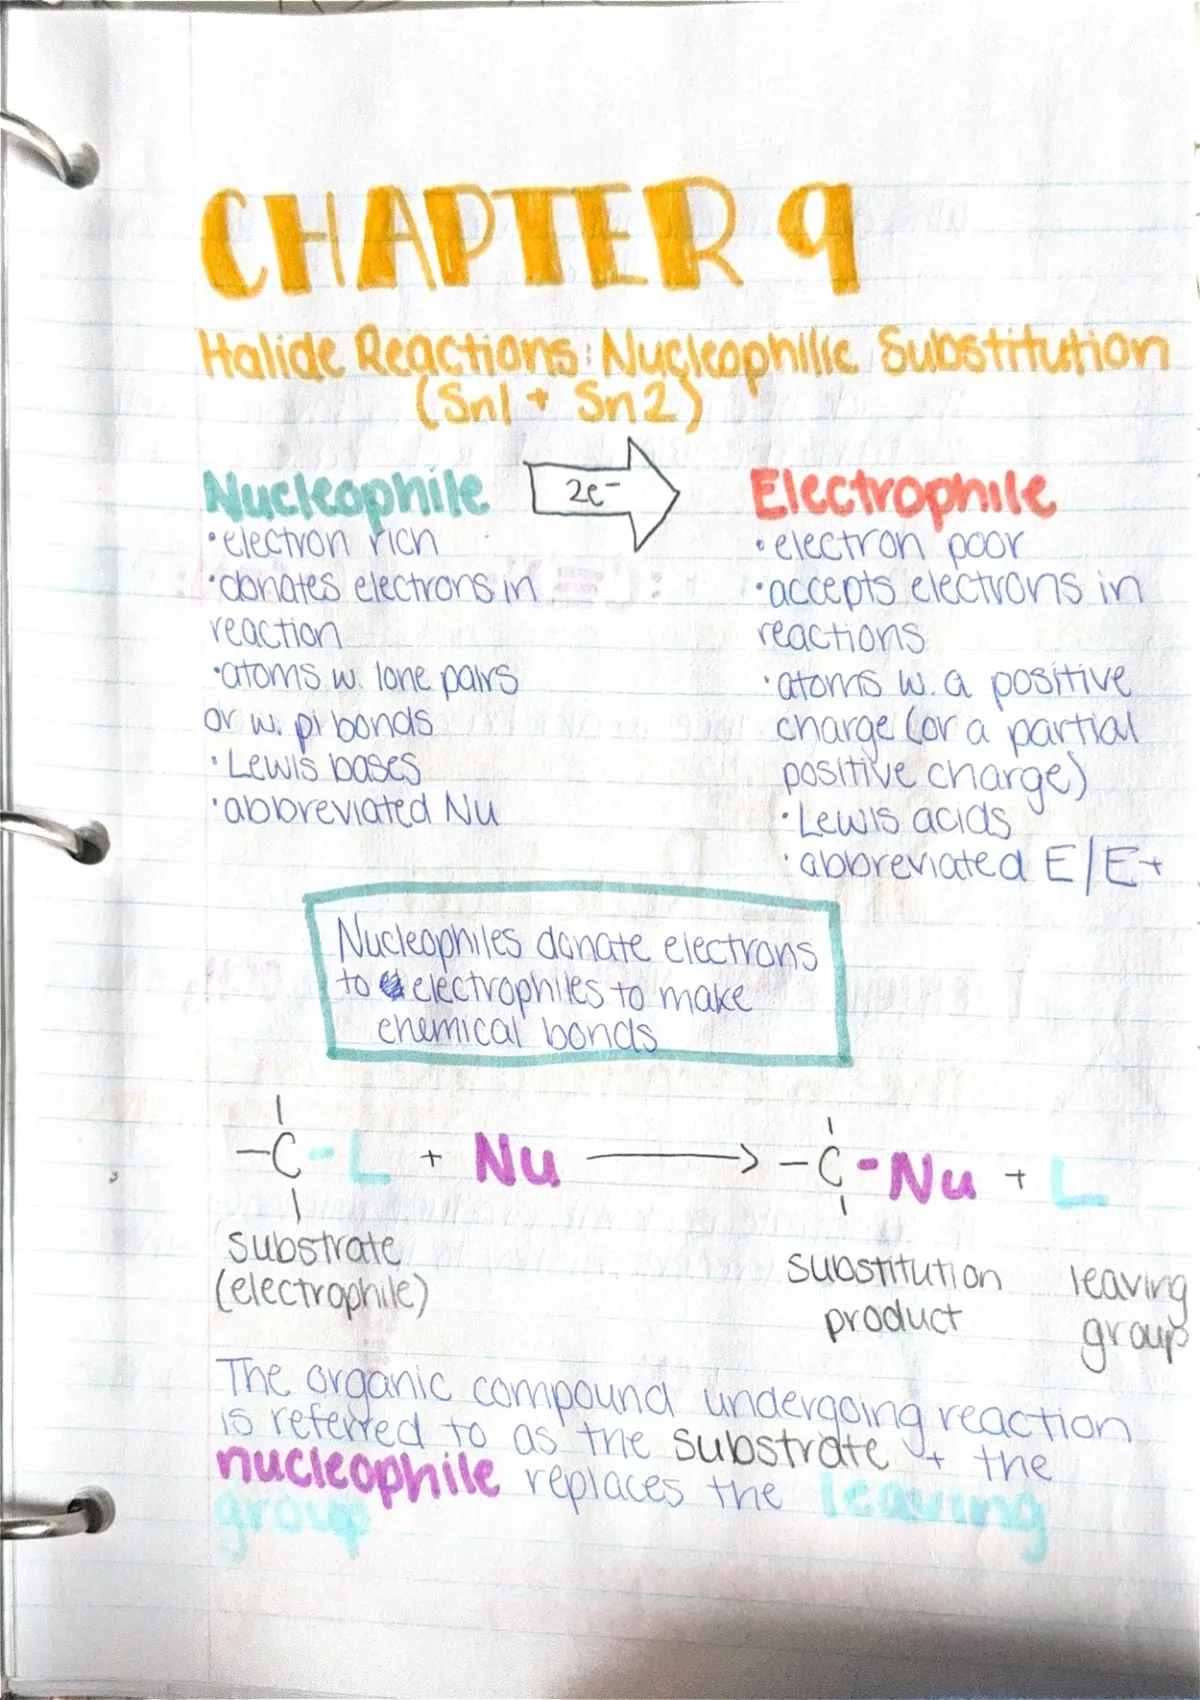 CHAPTER 9
Halide Reactions: Nucleophilic Substitution
(Sn1 + Sn2)
Nucleophile
2e-
Electrophile
• electron rich
• donates electrons in
reaction
• atoms w. lone pairs
or w. pi bonds
• Lewis bases
• abbreviated Nu
• electron poor
• accepts electrons in
reactions
• atoms w. a positive
charge (or a partial
positive charge)
• Lewis acids
• abbreviated E/E+
Nucleophiles donate electrons
to electrophiles to make
chemical bonds
-C-L + Nu → -C-Nu + L
substrate
(electrophile)
substitution
product
leaving
group
The organic compound undergoing reaction
is referred to as the substrate + the
nucleophile replaces the leaving
group